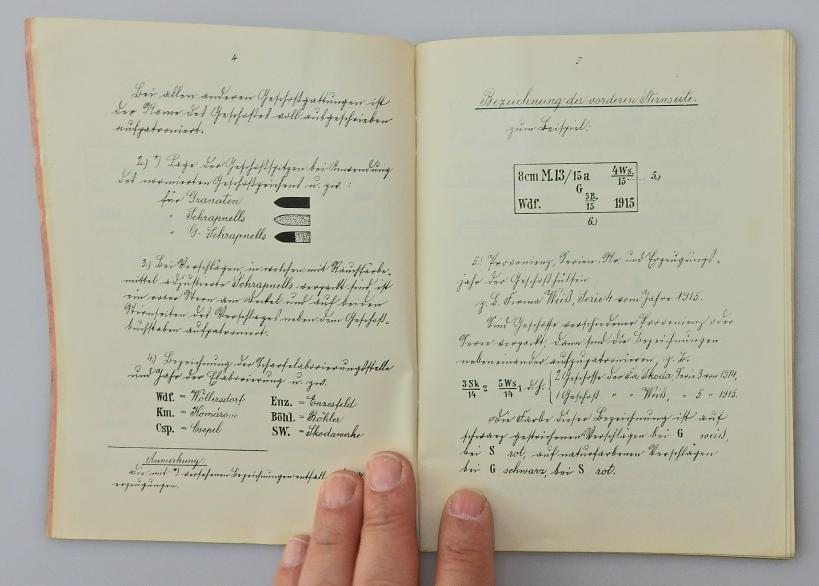 4
Bei allen anderen Geschoßgattungen ist
der Name des Geschoßes voll aufgeschrieben
aufpatroniert.
2.) *) Lage der Geschoßspitzen bei Anwendung
des normierten Geschoßzeichens u. zw.:
für Granaten
" Schrapnells
" G-Schrapnells
3.) Bei Verschlägen, in welchen mit Rauchfärbe-
mittel adjustierte Schrapnells verpackt sind, ist
ein roter Stern am Deckel und auf beiden
Stirnseiten des Verschlages neben dem Geschoß-
buchstaben aufpatroniert.
4.) Bezeichnung der Scharfelaborierungsstelle
und Jahr der Elaborierung u. zw.
Wdf. = Wöllersdorf Enz. = Enzesfeld
Km. = Komárom Böhl. = Böhler
Csp. = Csepel SW. = Skodawerke
Anmerkung:
Die mit *) versehenen Bezeichnungen entfallen
erzeugungen.
5
Bezeichnung der vorderen Stirnseite.
zum Beispiel:
8cm M.13/15a 4Ws./15 5.)
G
Wdf. 5B./15 1915
6.)
5.) Provenienz, Serien-No und Erzeugungs-
jahr der Geschoßhülsen
z.B. Firma Weiß, Serie 4 vom Jahre 1915.
Sind Geschosse verschiedener Provenienz oder
Serie verpackt, dann sind die Bezeichnungen
nebeneinander aufzupatronieren, z. B.
3Sk/14 2 5Ws/14 1 d.h. 2 Geschosse der Fa. Skoda, Serie 3 von 1914,
1 Geschoß " " Weiß, " 5 " 1915.
Die Farbe dieser Bezeichnung ist auf
schwarz gestrichenen Verschlägen bei G weiß,
bei S rot, auf naturfarbenen Verschlägen
bei G schwarz, bei S rot.